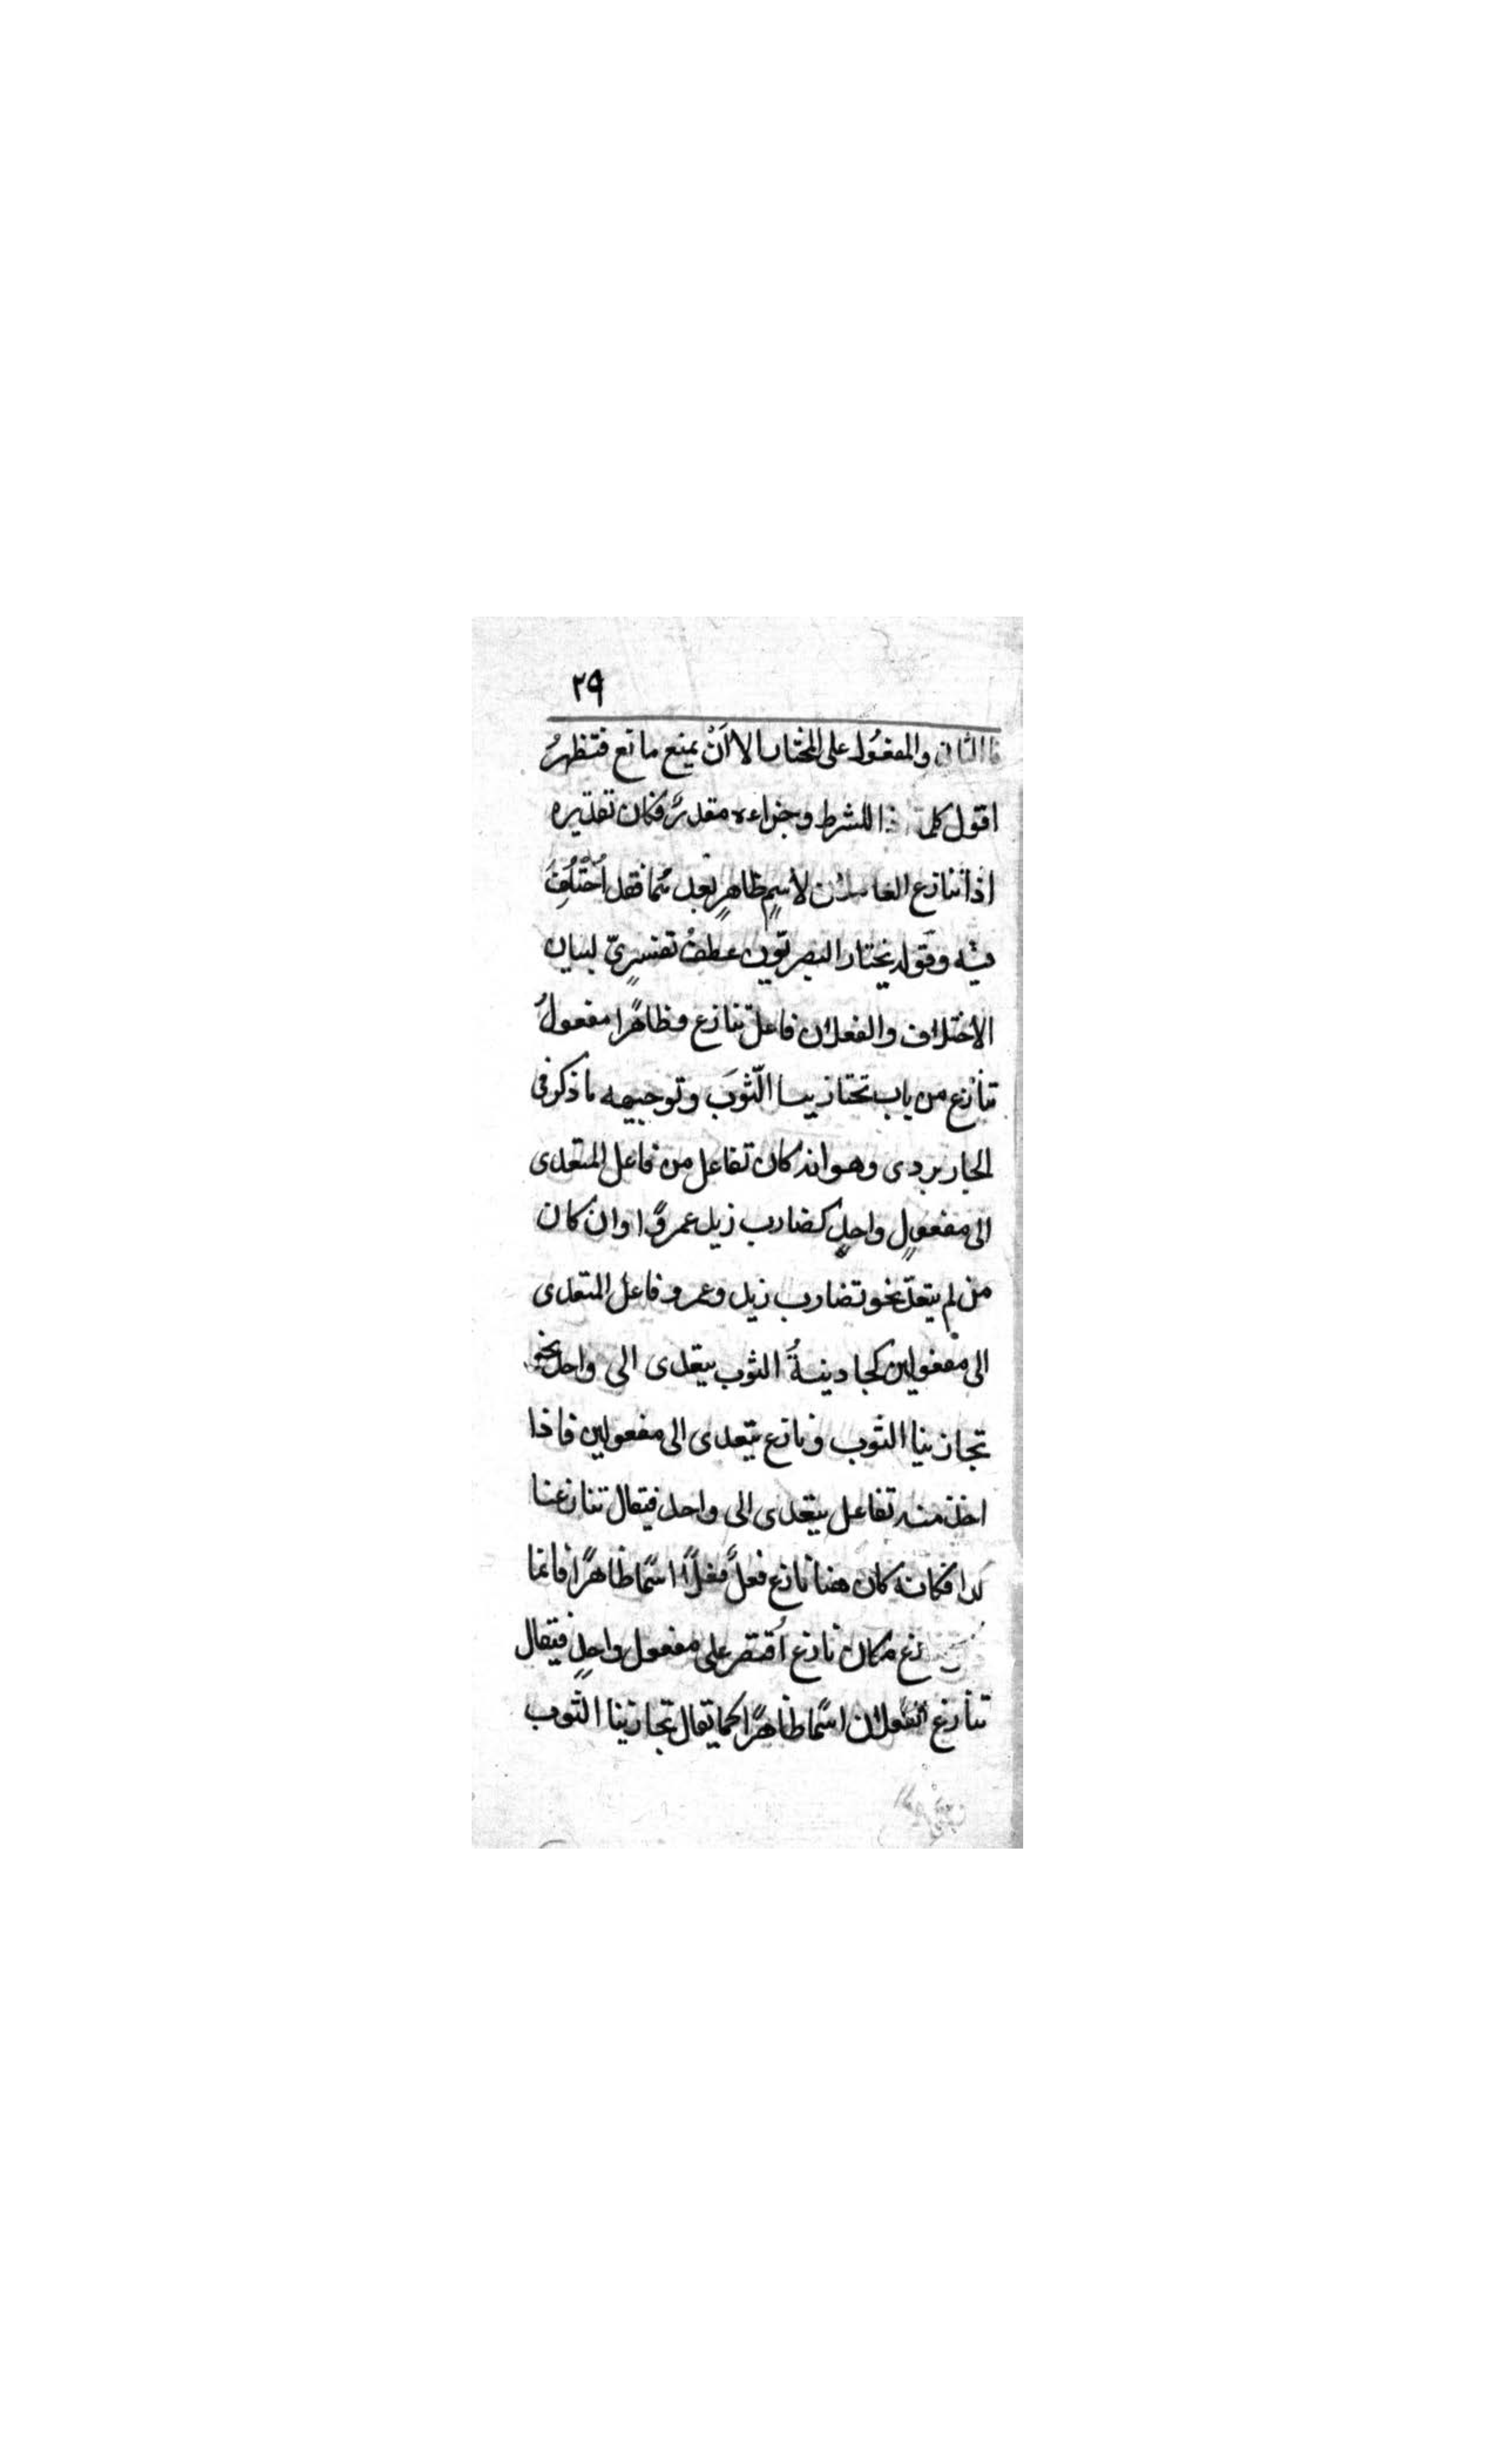 ٢٩
الثانى والمفعُول على المختار الا اَنْ يمنع مانع فتظهرُ
اقول كلمة اذا للشرط وجزاءه مقدرٌ فكان تقديره
اذا تنازع العاملان لاسمٍ ظاهرٍ بعدهما فقد اُخْتُلِفَ
فيه وقوله يختار البصريون عطفُ تفسيرىّ لبيان
الاختلاف والفعلان فاعل تنازع وظاهرًا مفعولُ
تنازع من باب تجاذبنا الثّوبَ وتوجيهه ما ذكر فى
الجاربردى وهو انه كان تفاعل من فاعل المتعدى
الى مفعولٍ واحدٍ كضارب زيد عمروًا وان كان
من لم يتعدّ نحو تضارب زيد وعمرو فاعل المتعدى
الى مفعولين كجاذبتهُ الثوب يتعدى الى واحد نحو
تجاذبنا الثوب ونازع يتعدى الى مفعولين فاذا
اخذ منه تفاعل يتعدى الى واحد فيقال تنازعنا
كذا فكانه كان هنا نازع فعلٌ فعلًا اسمًا ظاهرًا فلما
مكان نازع اُقتصر على مفعول واحدٍ فيقال
تنازع الفعلان اسمًا ظاهرًا كما يقال تجاذبنا الثّوب